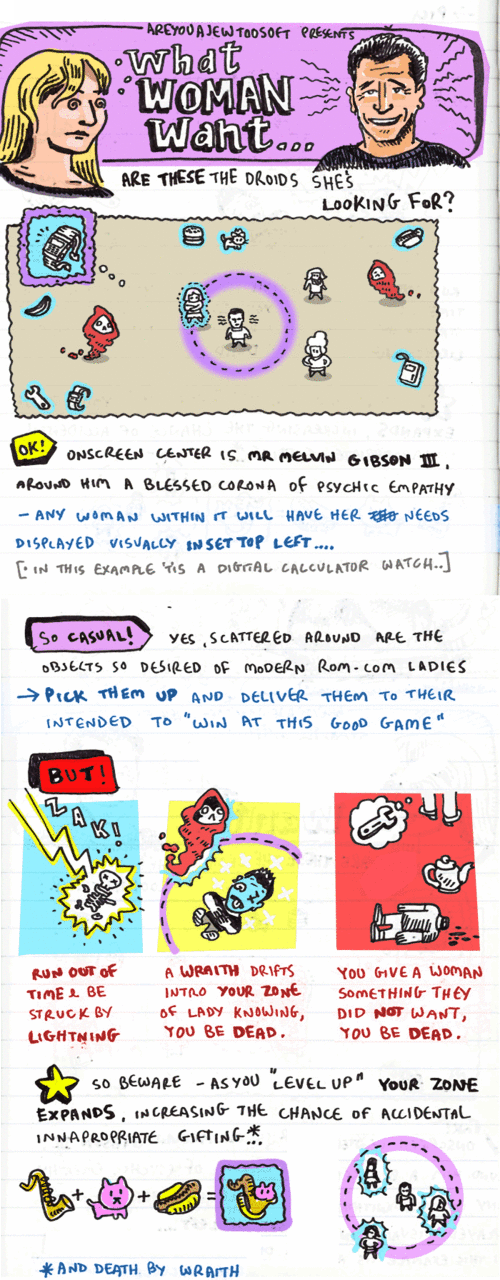 AREYOUAJEWTOOSOFT PRESENTS
What
WOMAN
Want...
ARE THESE THE DROIDS SHE'S
LOOKING FOR?
OK! ONSCREEN CENTER IS MR MELVIN GIBSON III,
AROUND HIM A BLESSED CORONA OF PSYCHIC EMPATHY
- ANY WOMAN WITHIN IT WILL HAVE HER NEEDS
DISPLAYED VISUALLY INSET TOP LEFT....
[· IN THIS EXAMPLE 'TIS A DIGITAL CALCULATOR WATCH..]
SO CASUAL! YES, SCATTERED AROUND ARE THE
OBJECTS SO DESIRED OF MODERN ROM-COM LADIES
→ PICK THEM UP AND DELIVER THEM TO THEIR
INTENDED TO "WIN AT THIS GOOD GAME"
BUT!
ZAK!
RUN OUT OF
TIME & BE
STRUCK BY
LIGHTNING
A WRAITH DRIFTS
INTRO YOUR ZONE
OF LADY KNOWING,
YOU BE DEAD.
YOU GIVE A WOMAN
SOMETHING THEY
DID NOT WANT,
YOU BE DEAD.
SO BEWARE - AS YOU "LEVEL UP" YOUR ZONE
EXPANDS, INCREASING THE CHANCE OF ACCIDENTAL
INNAPROPRIATE GIFTING*..
+ + =
*AND DEATH BY WRAITH